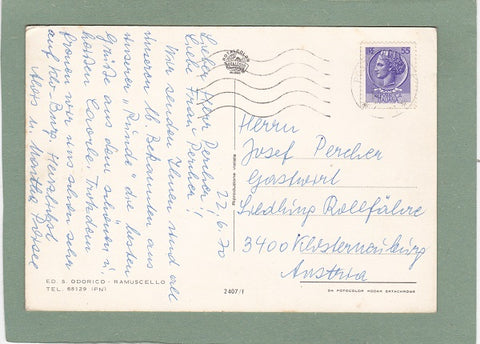 22.6.70
Lieber Herr Percher!
Liebe Frau Percher!
Wir senden Ihnen und all
unseren lb. Bekannten aus
unserer „Runde“ die besten
Grüße aus dem schönen u.
heißen Caorle. Trotzdem
freuen wir uns schon sehr
auf die Burg. Herzlichst
Alois u. Martha
Herrn
Josef Percher
Gastwirt
Siedlung Rollfähre
3400 Klosterneuburg
Austria
55
ED. S. ODORICO - RAMUSCELLO
TEL. 68129 (PN)
2407/f
DA FOTOCOLOR KODAK EKTACHROME